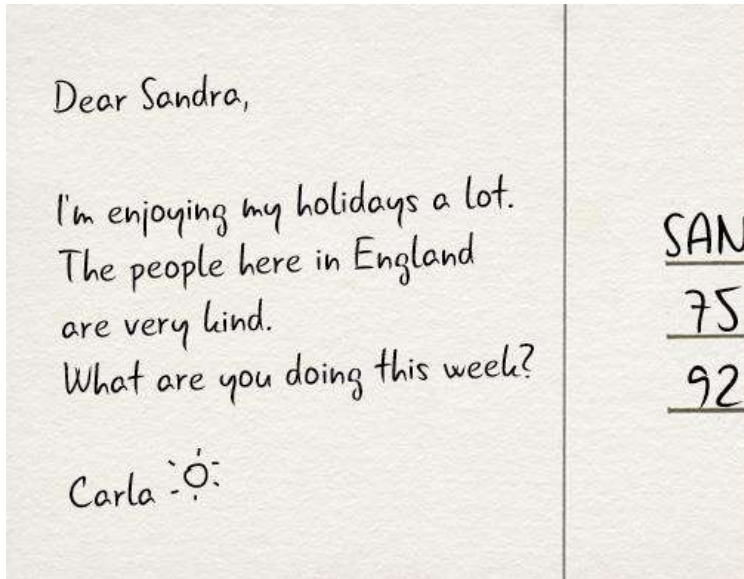 Dear Sandra,
I'm enjoying my holidays a lot.
The people here in England
are very kind.
What are you doing this week?
Carla
SAN
75
92